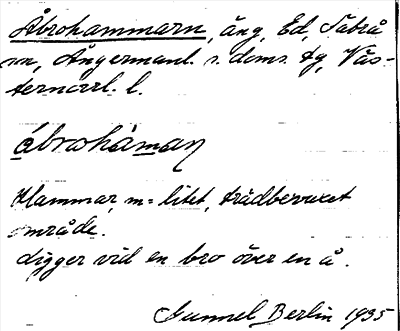 Åbrohammarn, äng, Ed, Säbrå
sn, Ångermanl. s. doms. tg, Väs-
ternorrl. l.
åbrohåman
Hammar, m = litet, trädbevuxet
område.
Ligger vid en bro över en å.
Gunnel Berlin 1935